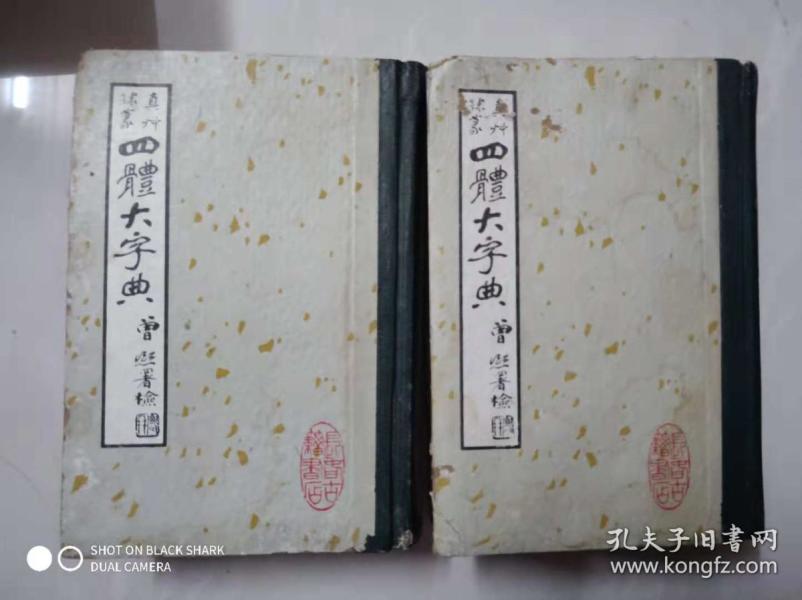 真艸
隶篆
四體大字典
曾熙署檢
長春古
籍書店
真艸
隶篆
四體大字典
曾熙署檢
長春古
籍書店
SHOT ON BLACK SHARK
DUAL CAMERA
孔夫子旧书网
www.kongfz.com